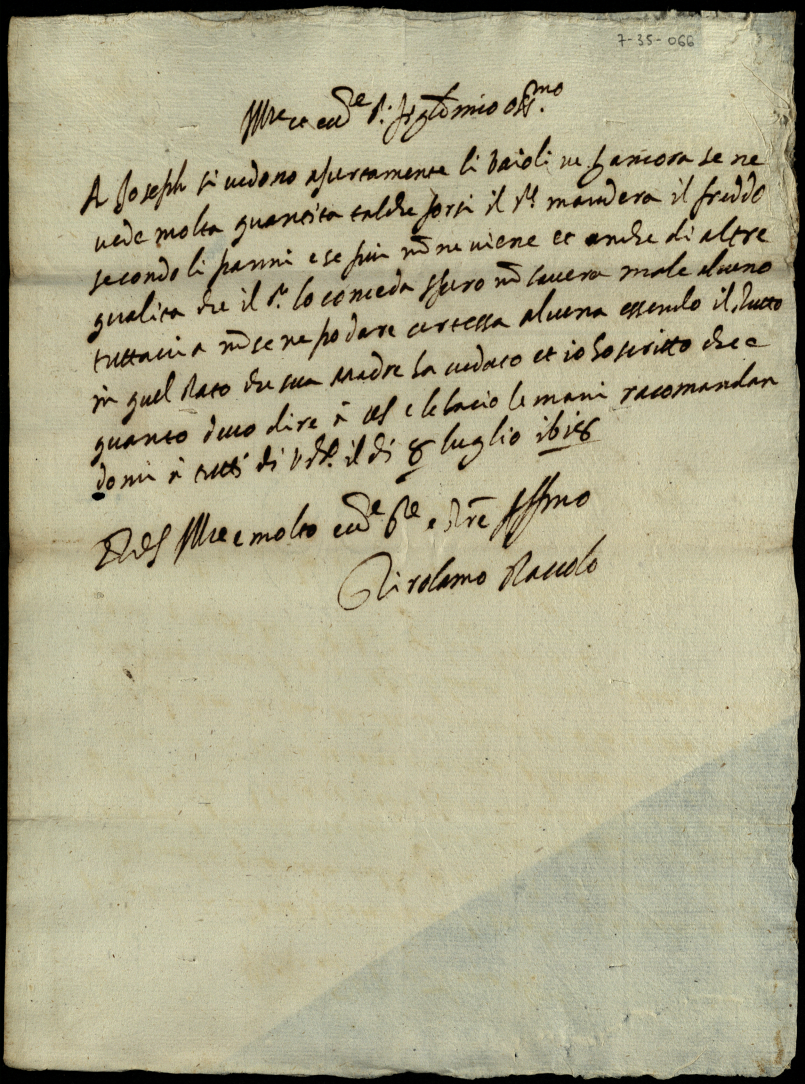 7-35-066
Ill.re et ecc.te S.r
A Joseph si vedono apertamente li vaioli ne p ancora se ne
vede molta quantita talche forsi il S.r mandera il freddo
secondo li panni e se piu nõ ne viene et anche di altre
qualita che il S.r lo conceda spero nõ havera male alcuno
tuttavia nõ se ne po dare certessa alcuna essendo il tutto
in quel stato che sua Madre ha veduto et io ho scritto che e
quanto devo dire à VS e le bacio le mani racomandan
domi à tutti di il di 8 luglio 1618
Di VS Ill.re e molto ecc.te
Girolamo